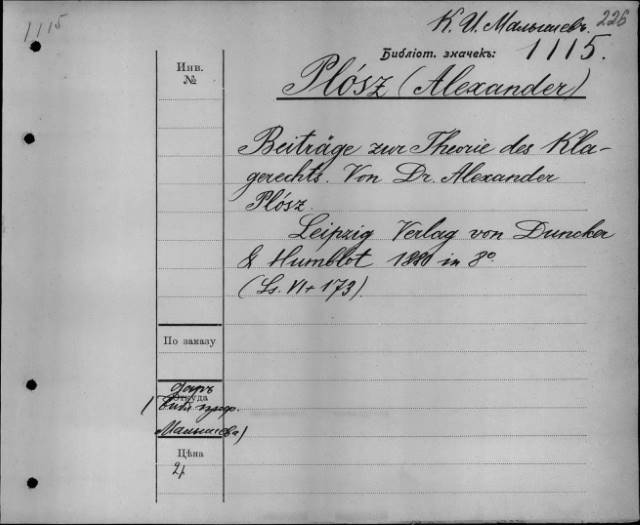 1115
К. И. Малышевъ.
226
Библіот. значекъ: 1115.
Инв.
№
Plósz (Alexander)
Beiträge zur Theorie des Kla-
gerechts. Von Dr. Alexander
Plósz.
Leipzig Verlag von Duncker
& Humblot 1880 in 8º.
(Ss. VI + 173).
По заказу
Даръ
Откуда
(Библ. проф.
Малышева)
Цѣна